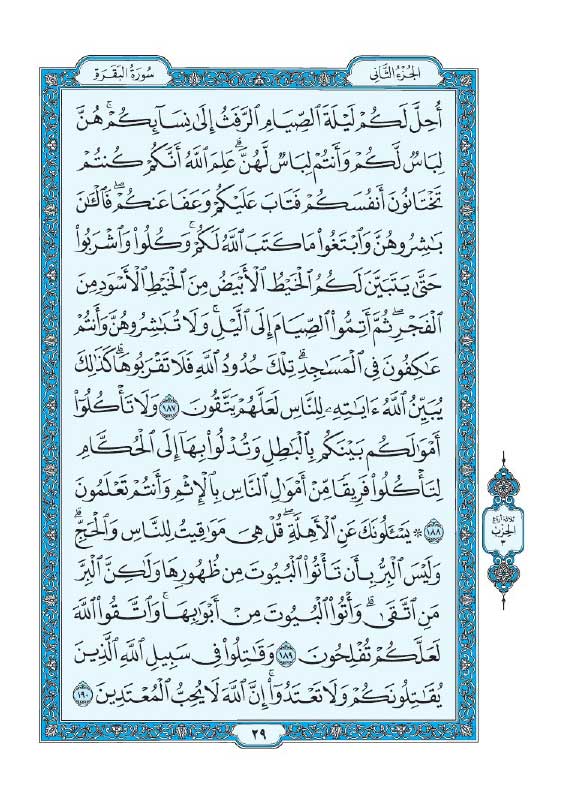 سُورَةُ البَقَرَةِ
الجُزْءُ الثَّانِي
أُحِلَّ لَكُمْ لَيْلَةَ ٱلصِّيَامِ ٱلرَّفَثُ إِلَىٰ نِسَآئِكُمْۚ هُنَّ
لِبَاسٞ لَّكُمْ وَأَنتُمْ لِبَاسٞ لَّهُنَّۗ عَلِمَ ٱللَّهُ أَنَّكُمْ كُنتُمْ
تَخْتَانُونَ أَنفُسَكُمْ فَتَابَ عَلَيْكُمْ وَعَفَا عَنكُمْۖ فَٱلْـَٰٔنَ
بَٰشِرُوهُنَّ وَٱبْتَغُوا۟ مَا كَتَبَ ٱللَّهُ لَكُمْۚ وَكُلُوا۟ وَٱشْرَبُوا۟
حَتَّىٰ يَتَبَيَّنَ لَكُمُ ٱلْخَيْطُ ٱلْأَبْيَضُ مِنَ ٱلْخَيْطِ ٱلْأَسْوَدِ مِنَ
ٱلْفَجْرِۖ ثُمَّ أَتِمُّوا۟ ٱلصِّيَامَ إِلَى ٱلَّيْلِۚ وَلَا تُبَٰشِرُوهُنَّ وَأَنتُمْ
عَٰكِفُونَ فِى ٱلْمَسَٰجِدِۗ تِلْكَ حُدُودُ ٱللَّهِ فَلَا تَقْرَبُوهَاۗ كَذَٰلِكَ
يُبَيِّنُ ٱللَّهُ ءَايَٰتِهِۦ لِلنَّاسِ لَعَلَّهُمْ يَتَّقُونَ ١٨٧ وَلَا تَأْكُلُوٓا۟
أَمْوَٰلَكُم بَيْنَكُم بِٱلْبَٰطِلِ وَتُدْلُوا۟ بِهَآ إِلَى ٱلْحُكَّامِ
لِتَأْكُلُوا۟ فَرِيقًا مِّنْ أَمْوَٰلِ ٱلنَّاسِ بِٱلْإِثْمِ وَأَنتُمْ تَعْلَمُونَ
١٨٨ ۞ يَسْـَٔلُونَكَ عَنِ ٱلْأَهِلَّةِۖ قُلْ هِىَ مَوَٰقِيتُ لِلنَّاسِ وَٱلْحَجِّۗ
وَلَيْسَ ٱلْبِرُّ بِأَن تَأْتُوا۟ ٱلْبُيُوتَ مِن ظُهُورِهَا وَلَٰكِنَّ ٱلْبِرَّ
مَنِ ٱتَّقَىٰۗ وَأْتُوا۟ ٱلْبُيُوتَ مِنْ أَبْوَٰبِهَاۚ وَٱتَّقُوا۟ ٱللَّهَ
لَعَلَّكُمْ تُفْلِحُونَ ١٨٩ وَقَٰتِلُوا۟ فِى سَبِيلِ ٱللَّهِ ٱلَّذِينَ
يُقَٰتِلُونَكُمْ وَلَا تَعْتَدُوٓا۟ۚ إِنَّ ٱللَّهَ لَا يُحِبُّ ٱلْمُعْتَدِينَ ١٩٠
ثلاثة أرباع
الحزب
٣
٢٩